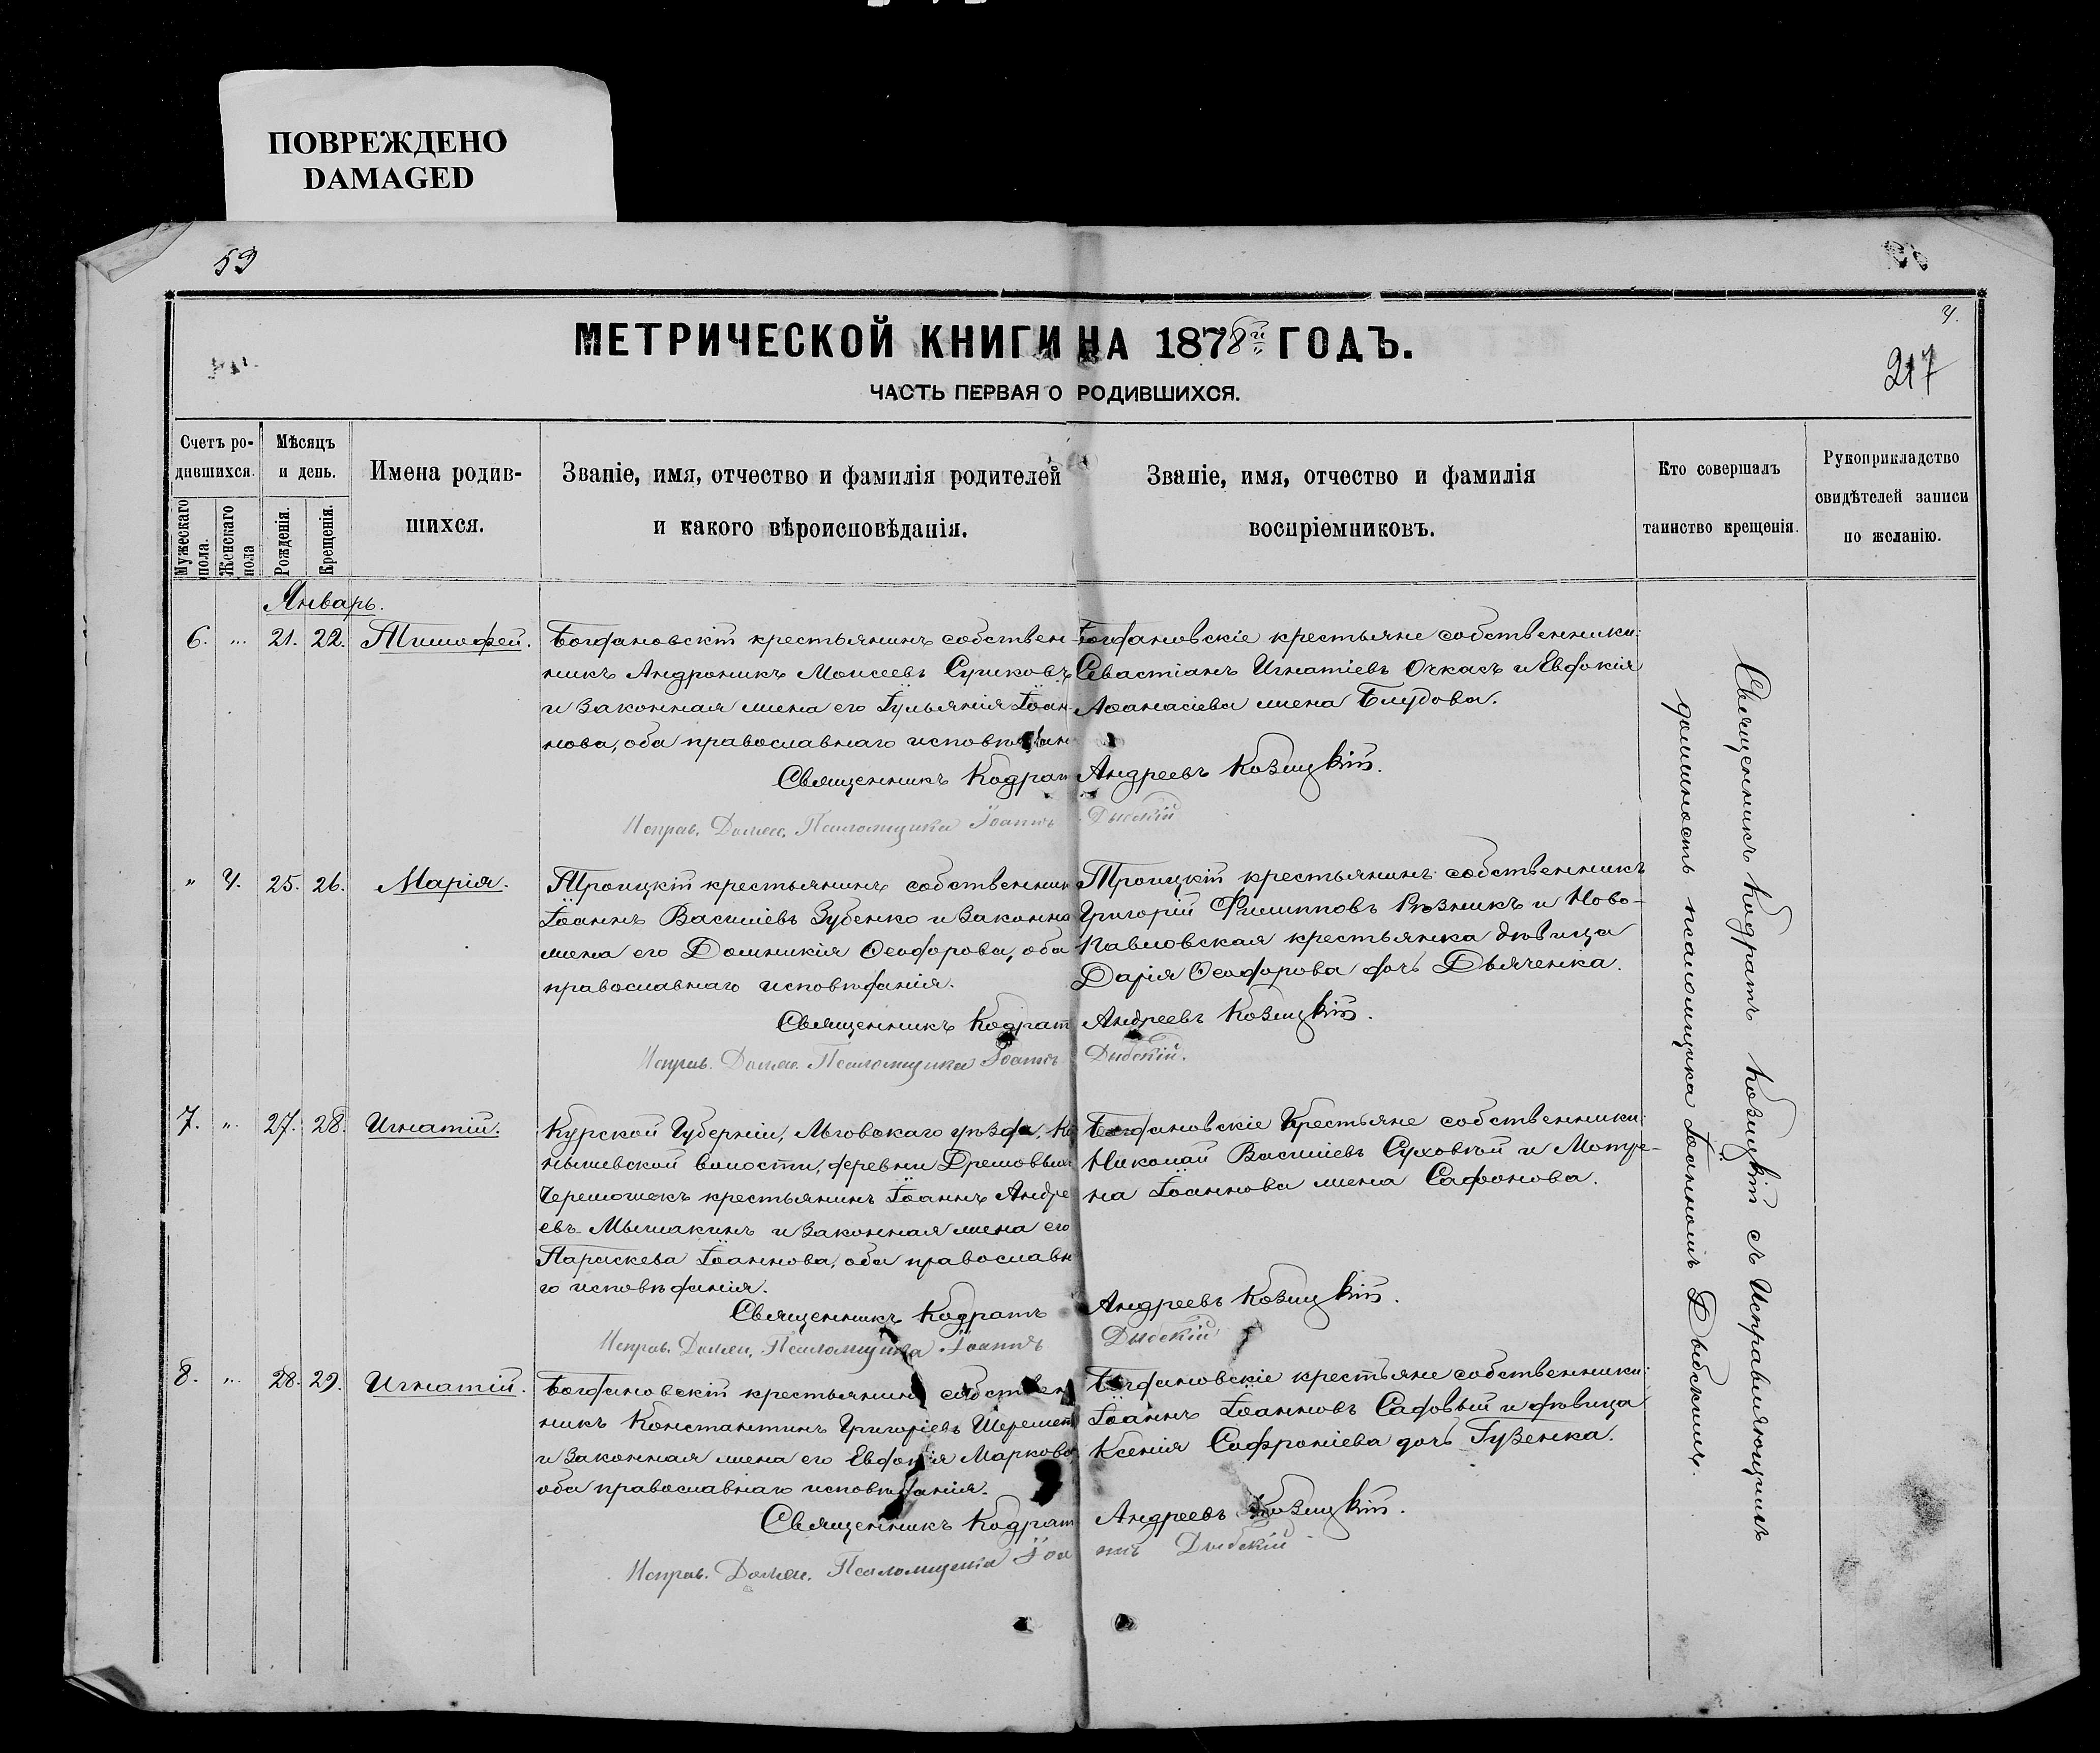 ПОВРЕЖДЕНО
DAMAGED
59
МЕТРИЧЕСКОЙ КНИГИ НА 1878й ГОДЪ.
ЧАСТЬ ПЕРВАЯ О РОДИВШИХСЯ.
4.
217
Счетъ родившихся.
Мужескаго пола.
Женскаго пола
Мѣсяцъ и день.
Рожденія.
Крещенія.
Имена родив-
шихся.
Званіе, имя, отчество и фамилія родителей
и какого вѣроисповѣданія.
Званіе, имя, отчество и фамилія
воспріемниковъ.
Кто совершалъ
таинство крещенія.
Рукоприкладство
свидѣтелей записи
по желанію.
Январь.
6. " 21. 22. Тимофей.
Богдановскій крестьянинъ собствен-
никъ Андроникъ Моисеевъ Суриковъ
и законная жена его Іульянія Іоан-
нова, оба православнаго исповѣдан
Богдановскіе крестьяне собственники:
Севастіанъ Игнатіевъ Очкасъ и Евдокія
Аѳанасіева жена Блудова.
Священникъ Кодрат Андреевъ Козицкій.
Исправ. Должн. Псаломщика Іоаннъ Дыбскій
" 4. 25. 26. Марія.
Троицкій крестьянинъ собственник
Іоаннъ Василіевъ Зубенко и законна
жена его Домникія Ѳеодорова, оба
православнаго исповѣданія.
Троицкій крестьянинъ собственникъ
Григорій Филипповъ Рѣзникъ и Ново-
павловская крестьянка дѣвица
Дарія Ѳеодорова дочь Дьяченка.
Священникъ Кодрат Андреевъ Козицкій.
Исправ. Должн. Псаломщика Іоаннъ Дыбскій.
7. " 27. 28. Игнатій.
Курской Губерніи, Льговскаго уѣзда, Ко
нышевской волости, деревни
Черемошекъ крестьянинъ Іоаннъ Андре
евъ Мышакинъ и законная жена его
Параскева Іоаннова, оба православна
го исповѣданія.
Богдановскіе Крестьяне собственники:
Николай Василіевъ Суховѣй и Мотре-
на Іоаннова жена Сафонова.
Священникъ Кодратъ Андреевъ Козицкій.
Исправ. Должн. Псаломщика Іоаннъ Дыбскій
8. " 28. 29. Игнатій.
Богдановскій крестьянинъ собствен
никъ Константинъ Григоріевъ Шеремет
и законная жена его Евдокія Маркова
оба православнаго исповѣданія.
Богдановскіе крестьяне собственники:
Іоаннъ Іоанновъ Садовый и дѣвица
Ксенія Софроніева дочь Гузенка.
Священникъ Кодрат Андреевъ Козицкій.
Исправ. Должн. Псаломщика Іоаннъ Дыбскій
Священникъ Кодратъ Козицкій съ Исправляющимъ
должность псаломщика Іоанномъ Дыбскимъ.